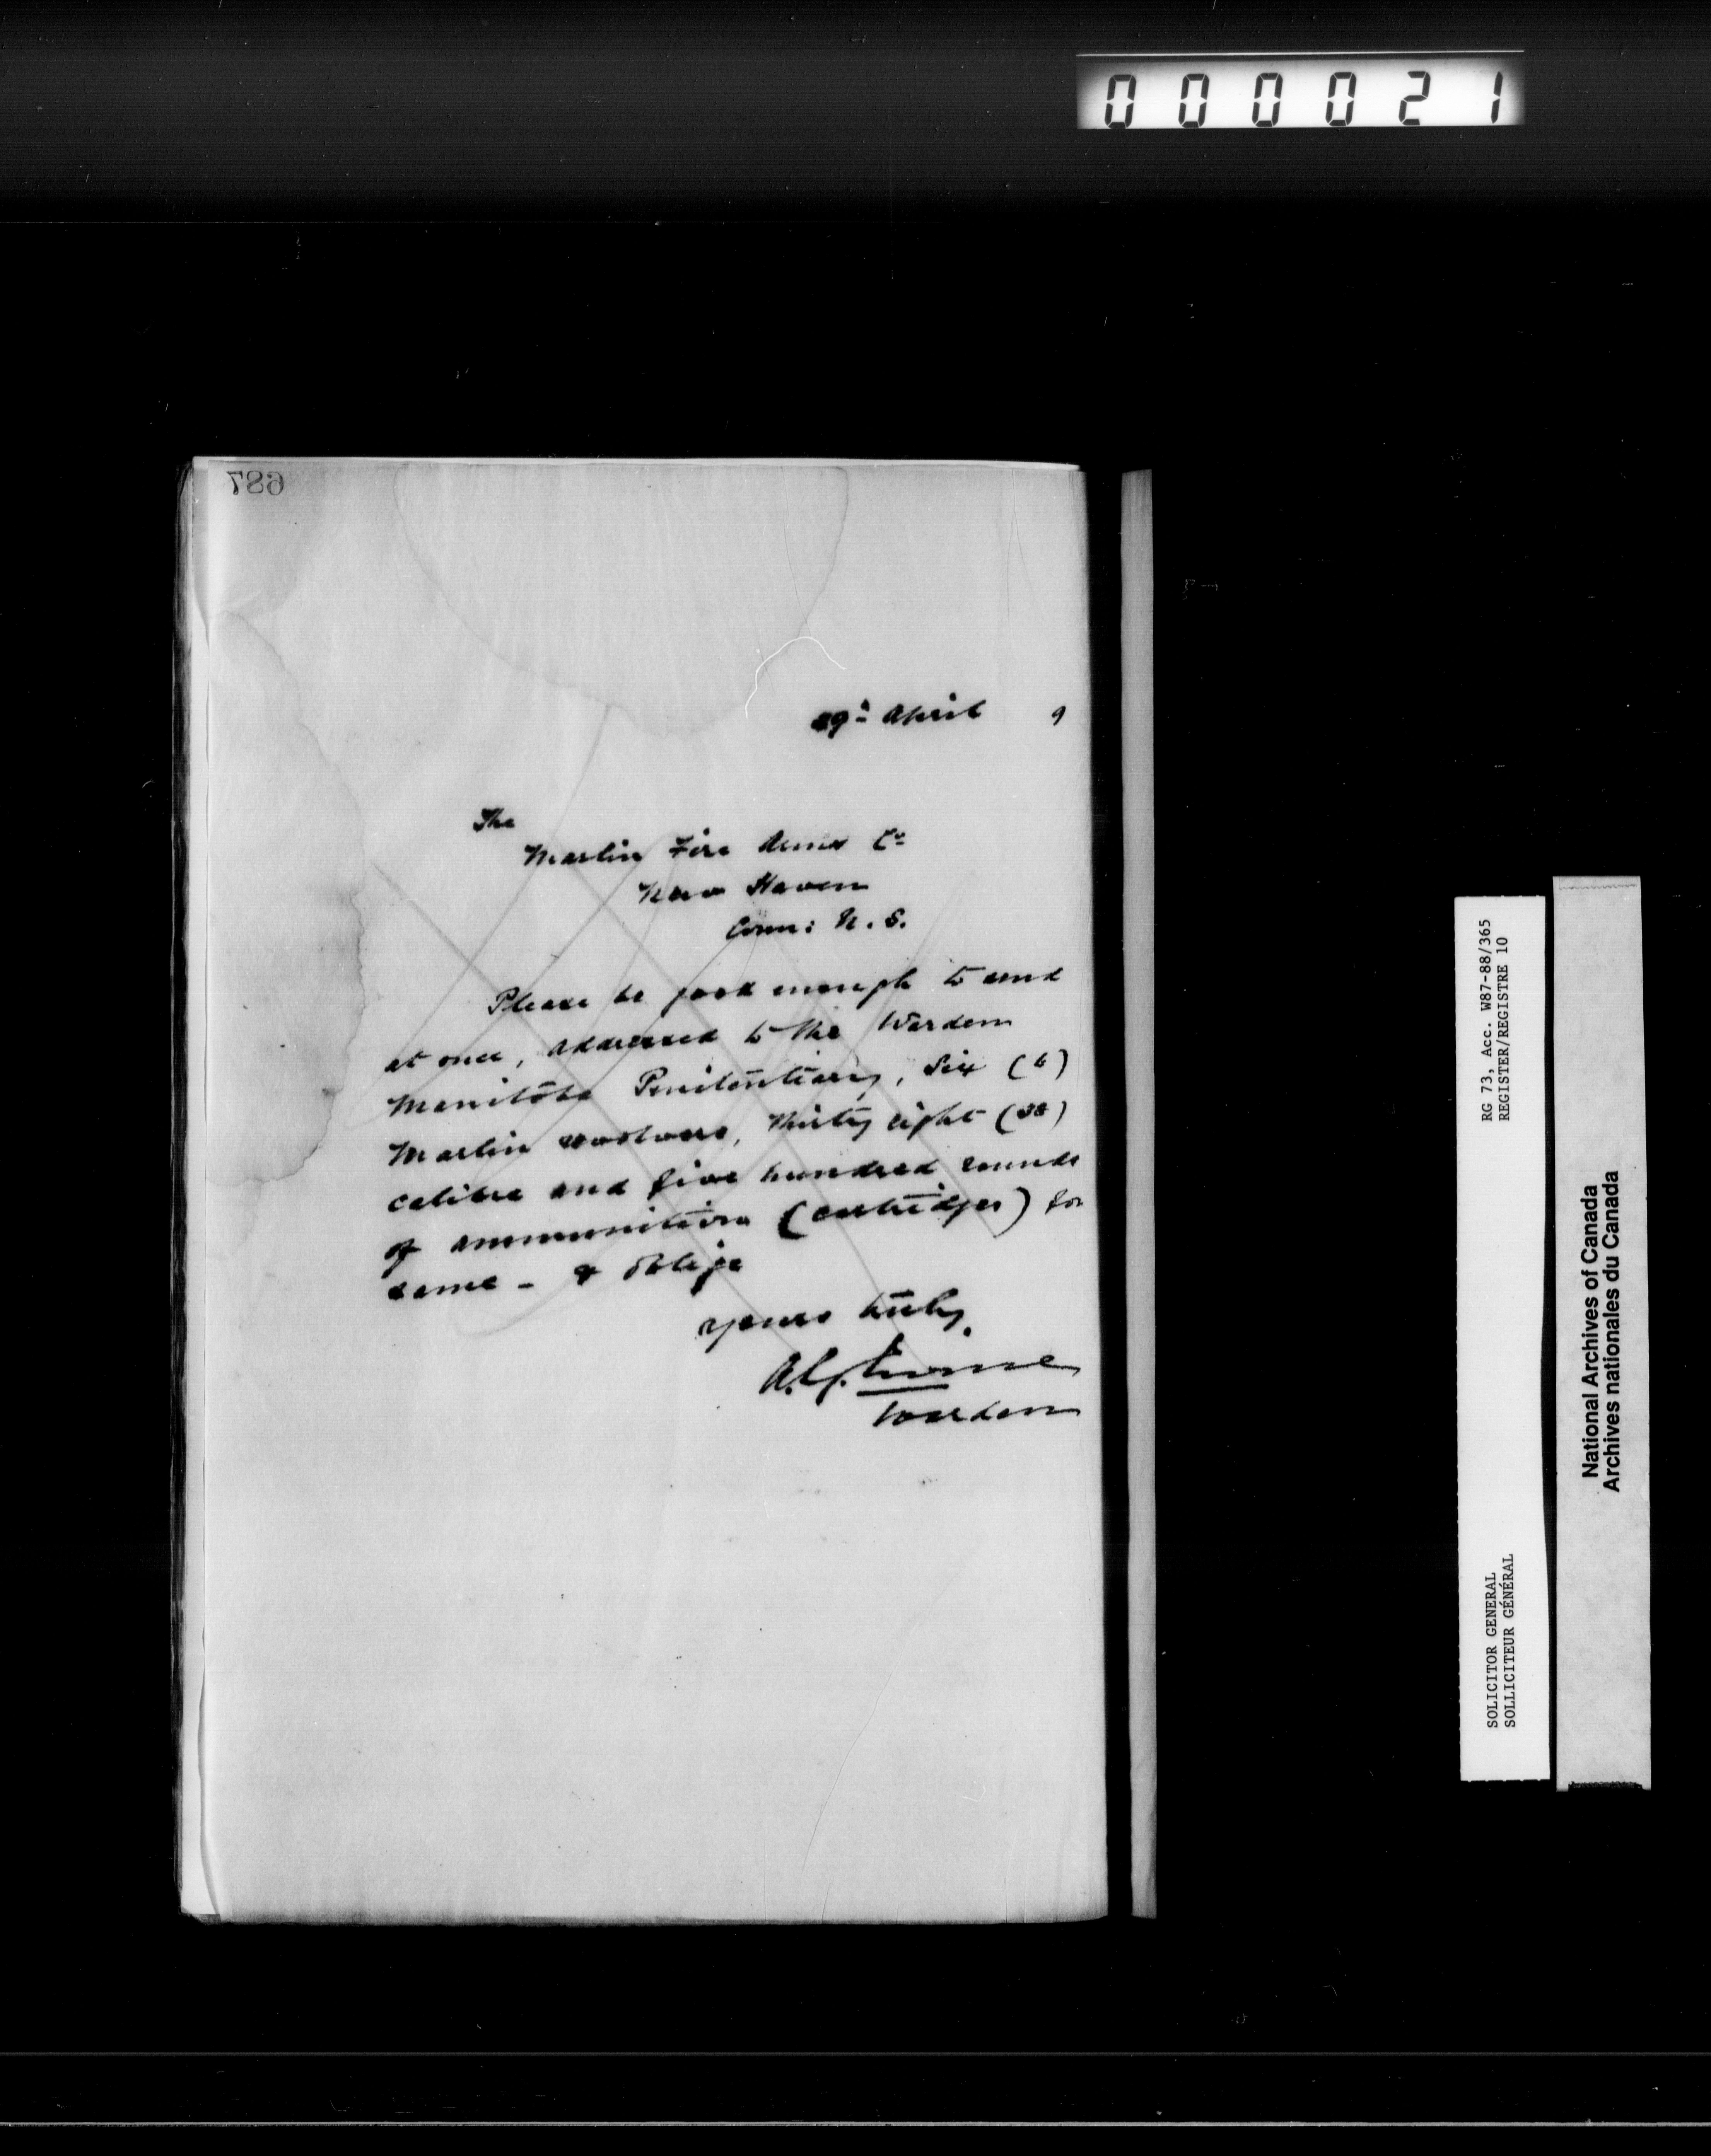 000021
687
29th April 9
The
Marlin Fire Arms Co
New Haven
Conn: U.S.
Please be good enough to send
at once, addressed to the Warden
Manitoba Penitentiary, Six (6)
Marlin revolvers, thirty eight (38)
calibre and five hundred rounds
of ammunition (cartridges) for
same - & oblige
yours truly,
Warden
RG 73, Acc. W87-88/365
REGISTER/REGISTRE 10
SOLICITOR GENERAL
SOLLICITEUR GÉNÉRAL
National Archives of Canada
Archives nationales du Canada